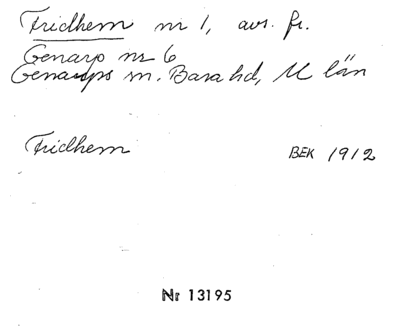 Fridhem nr 1, avs. fr.
Genarp nr 6
Genarps sn. Bara hd, M län
Fridhem BEK 1912
Nr 13195